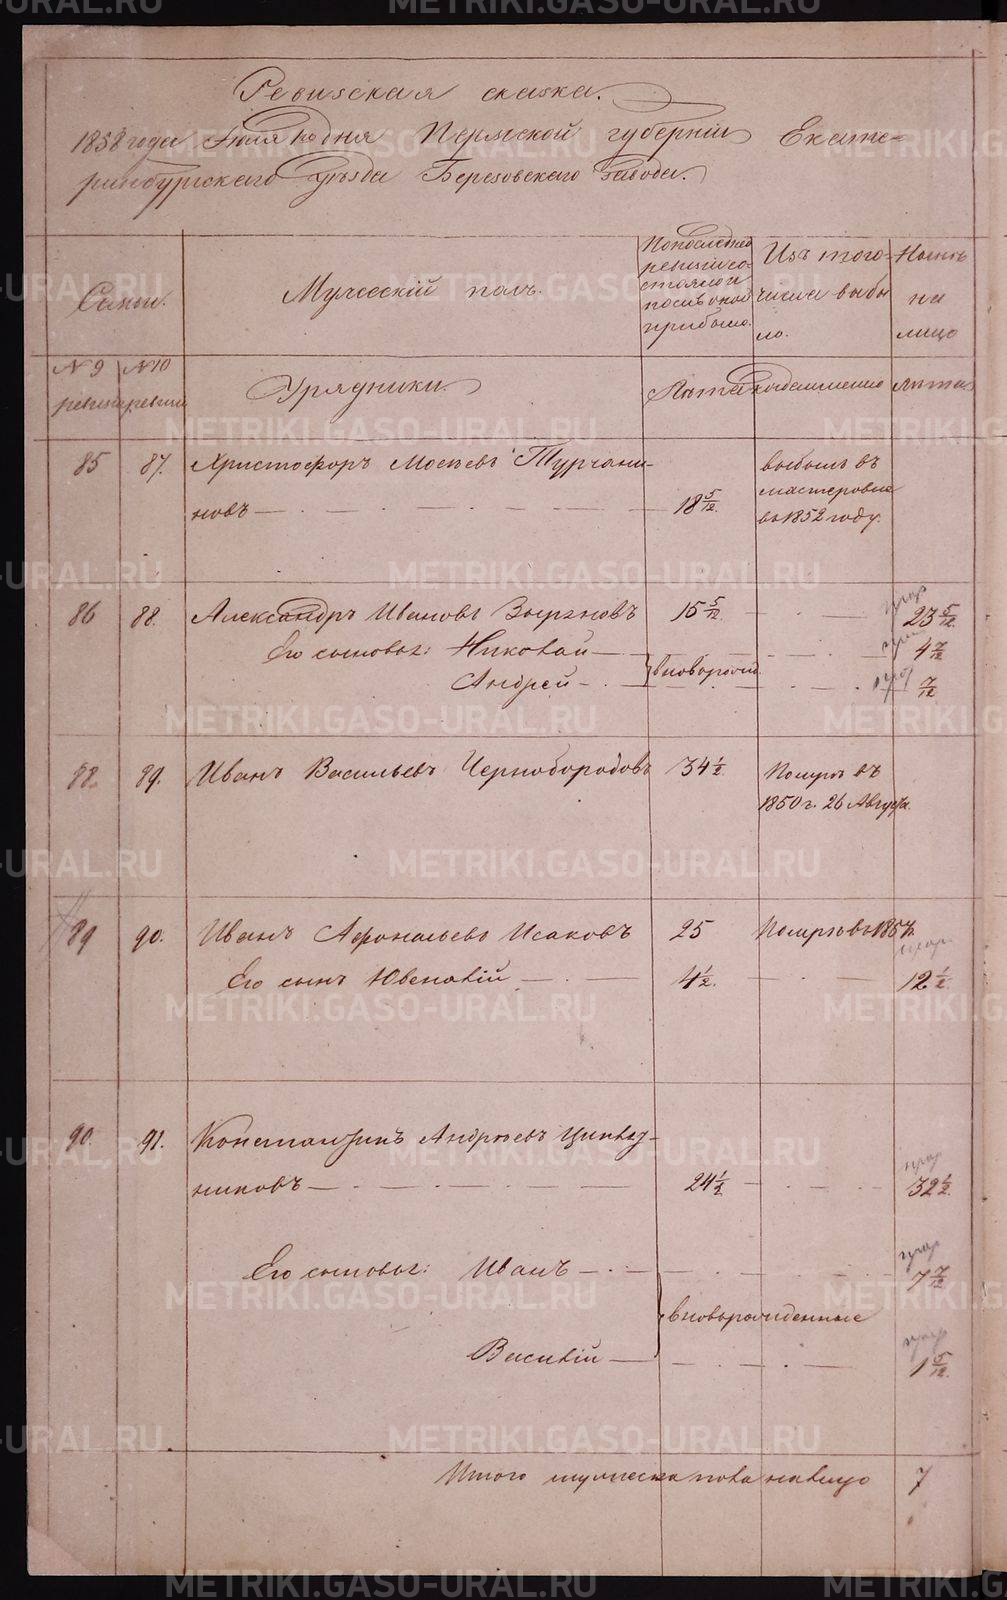 Ревизская сказка.
1858 года Июля дня Пермской губерніи Екате-
ринбургскаго уѣзда Березовскаго завода.
Семьи.
Мужескій полъ.
По последней
ревизіи со-
стояло и
послѣ оной
прибыло.
Изъ того
числа выбы
ло.
Нынѣ
на
лицо
№ 9
ревизіи
№ 10
ревизіи
Урядники.
Лѣта
лѣта
85 87. Христофоръ Мосеевъ Турчани-
новъ 18 5/12. выбылъ въ
мастеровые
въ 1852 году.
86 88. Александръ Ивановъ Зырянов 15 5/12 23 5/12.
Его сыновья: Николай 4 7/12
Андрей новорожд. 7/12
88. 89. Иванъ Васильевъ Чернобородовъ 34 1/2. Померъ въ
1850 г. 26 Августа.
89 90. Иванъ Афонасьевъ Исаковъ 25 Помре въ 1857
Его сынъ Ювеналій 4 1/2. 12 1/2.
90. 91. Константинъ Андреевъ
никовъ 24 1/2 32 1/2.
Его сыновья: Иванъ 7 7/12
новорожденные
Василій 1 5/12.
Итого мужеска пола на лицо 7
METRIKI.GASO-URAL.RU